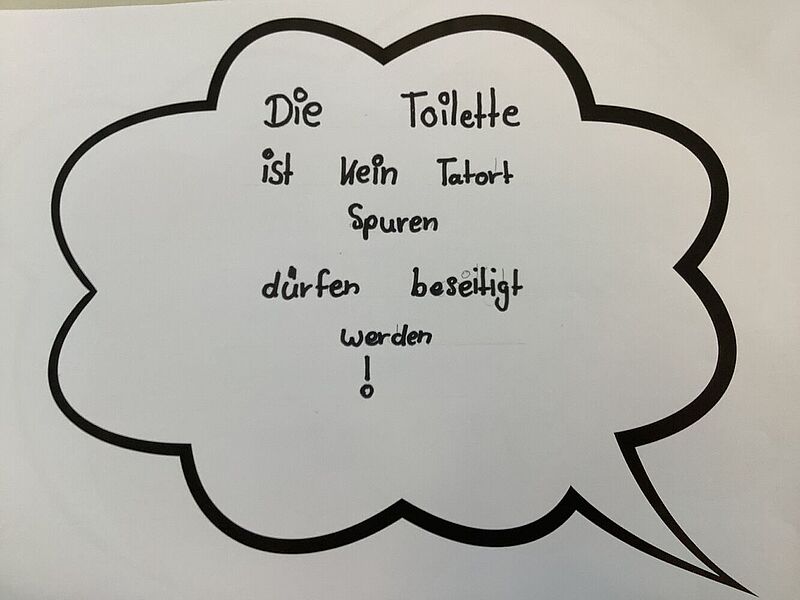 Die Toilette
ist kein Tatort
Spuren
dürfen beseitigt
werden
!